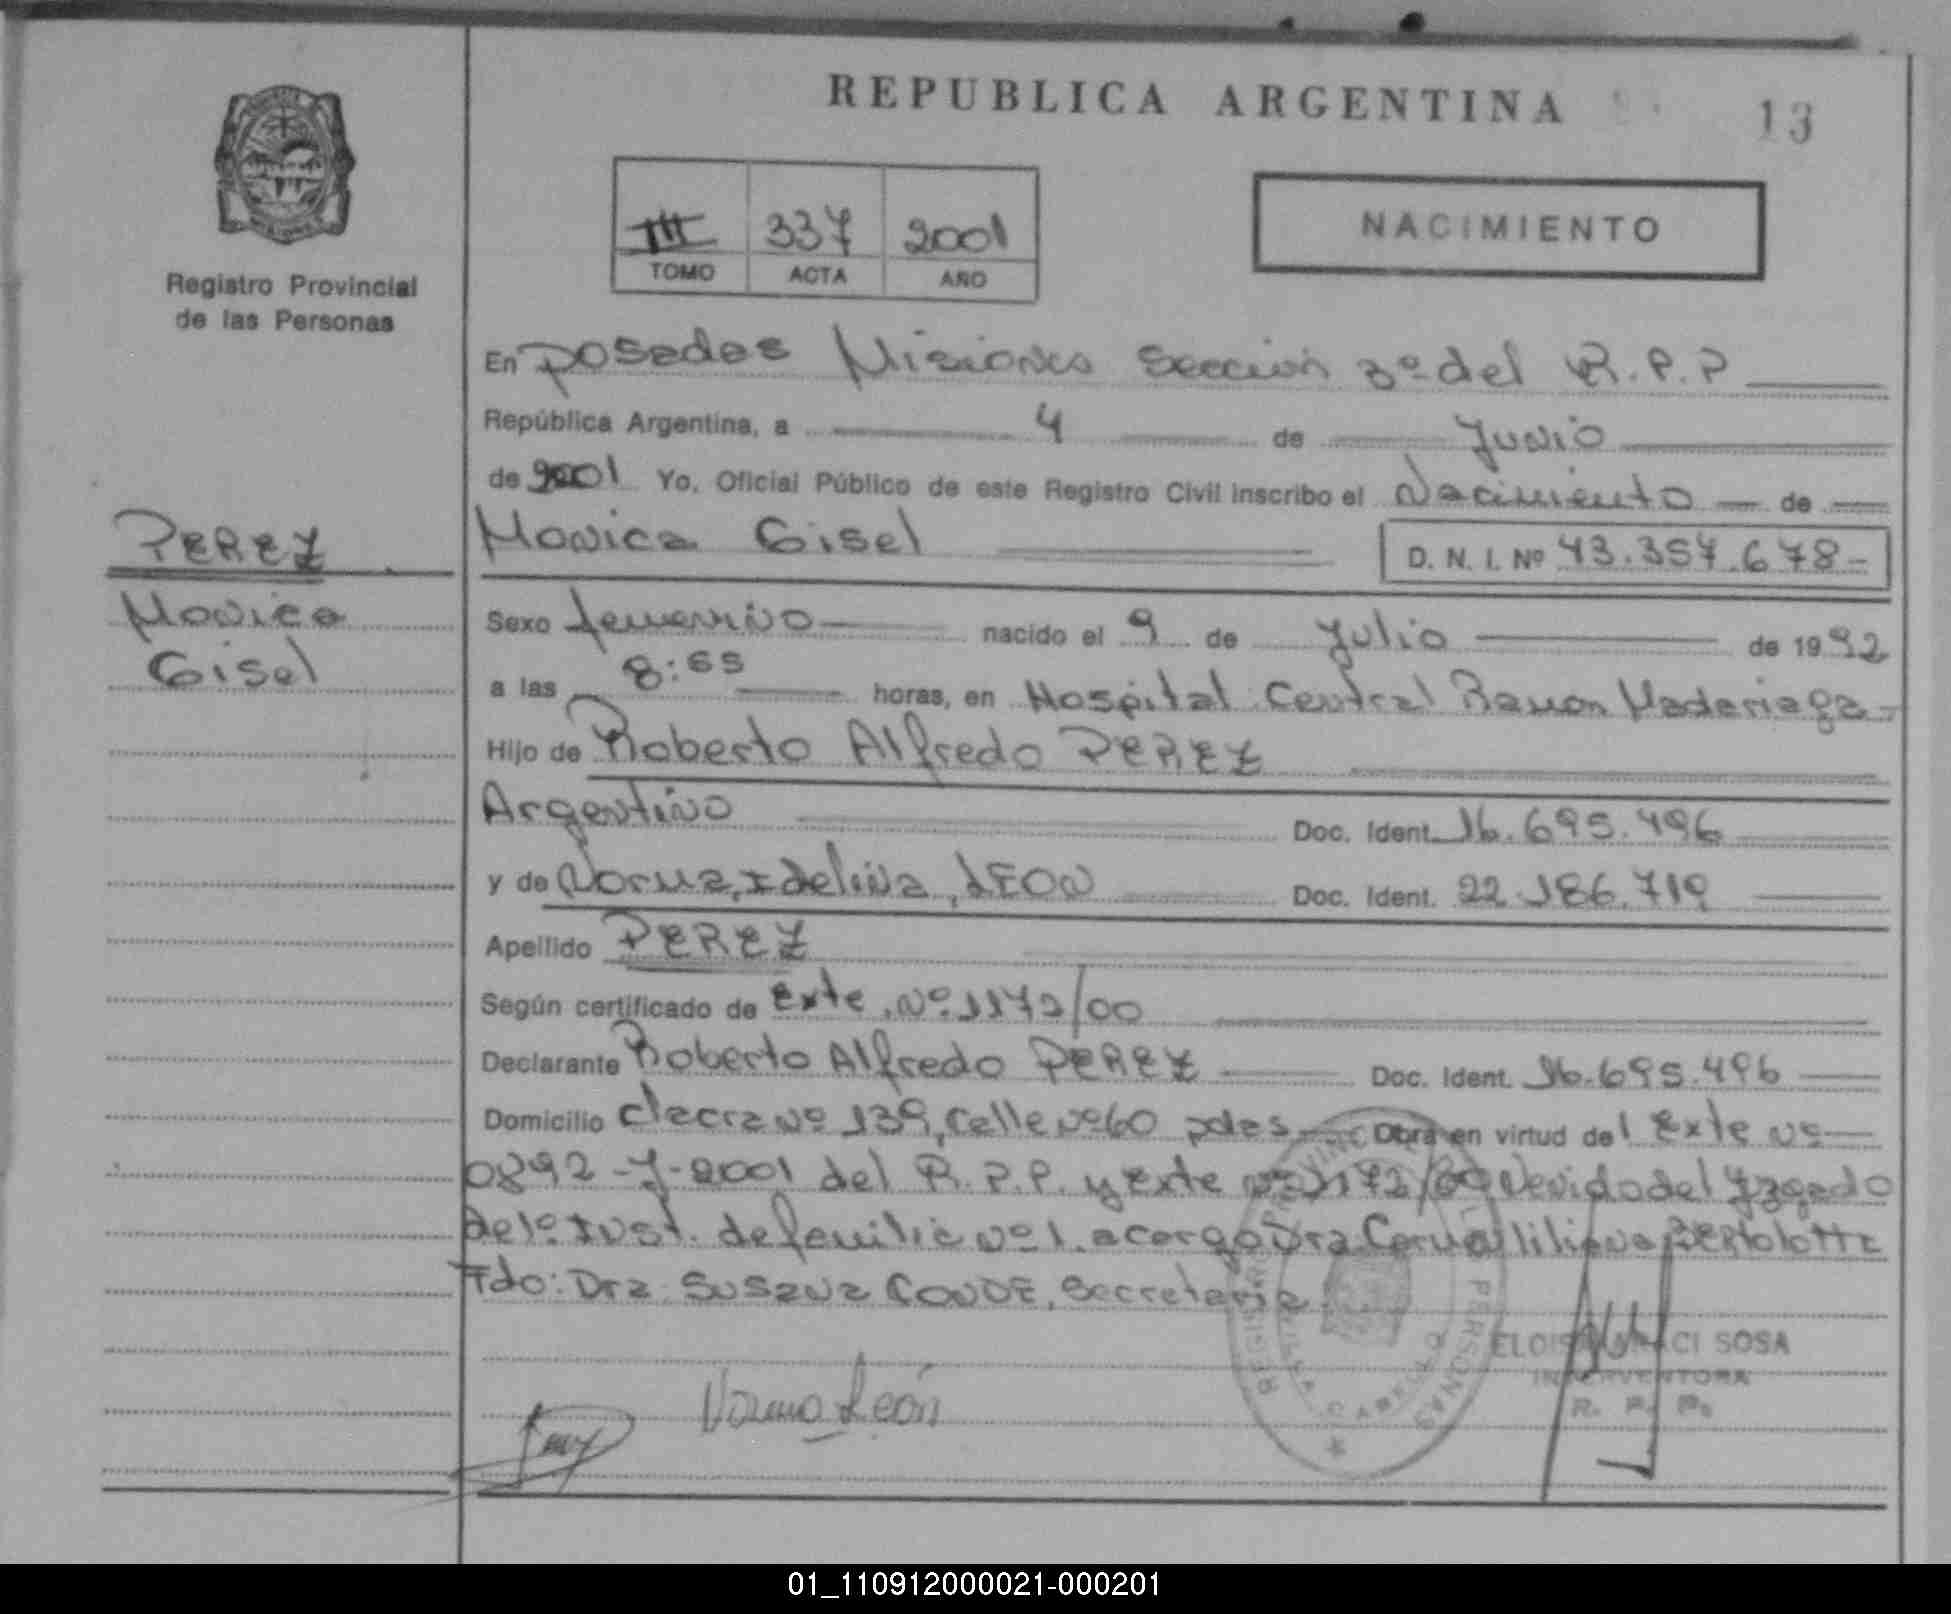 REPUBLICA ARGENTINA
13
Registro Provincial
de las Personas
III 337 2001
TOMO ACTA AÑO
NACIMIENTO
En Posadas Misiones Sección 3º del R.P.P
República Argentina, a 4 de Junio
de 2001 Yo, Oficial Público de este Registro Civil inscribo el Nacimiento de
Monica Gisel D. N. I. Nº 43.357.678-
PEREZ
Monica
Gisel
Sexo femenino nacido el 9 de Julio de 1992
a las 8: horas, en Hospital Central Ramon Madariaga-
Hijo de Roberto Alfredo PEREZ
Argentino Doc. Ident. 16.695.496
y de Norma, Idelina, LEON Doc. Ident. 22.186.719
Apellido PEREZ
Según certificado de Exte. Nº 1172/00
Declarante Roberto Alfredo PEREZ Doc. Ident. 16.695.496
Domicilio chacra Nº 139, calle Nº 60 pdas Obra en virtud del Exte Nº
0892-J-2001 del R.P.P. y Exte Nº 1172/00 Venido del Jzgado
de 1º Inst. de familia Nº 1. a cargo Dra. Liliana Bertolotti
Fdo: Dra. Susana CONDE, Secretaria.
ELOISA ARACI SOSA
INTERVENTORA
R. P. P.
Norma León
REGISTRO PROVINCIAL DE LAS PERSONAS
VILLA CABELLO
01_110912000021-000201